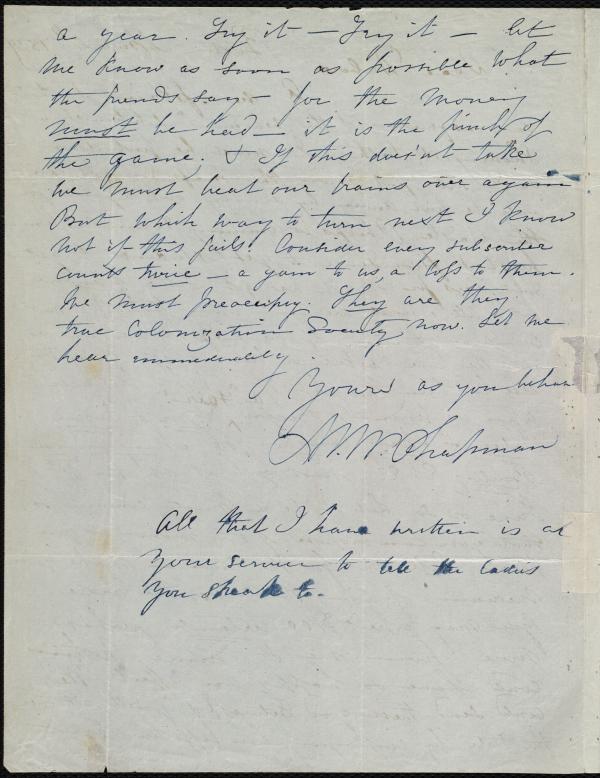 a year. Try it — Try it — let
me know as soon as possible what
the friends say — for the money
must be had — it is the pinch of
the game, & If this does'nt take
we must beat our brains over again
But which way to turn next I know
not if this fails! Consider every subscriber
counts twice — a gain to us, a loss to them.
We must preoccupy. They are the
true Colonization Society now. Let me
hear immediately.
Yours as you behave
M. W. Chapman
All that I have written is at
your service to tell the ladies
you speak to.